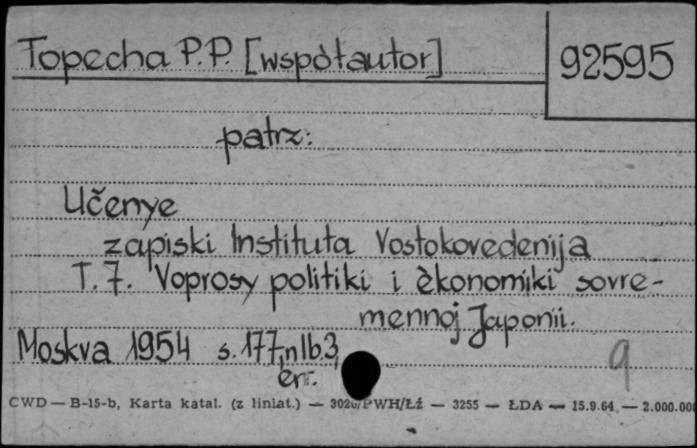 Topecha P.P. [współautor]
92595
patrz:
Učenye
zapiski Instituta Vostokovedenija
T. 7. Voprosy politiki i èkonomiki sovre-
mennoj Japonii.
Moskva 1954 s. 177, nlb. 3,
err.
9
CWD — B-15-b, Karta katal. (z liniat.) — 3020/PWH/Łź — 3255 — ŁDA — 15.9.64 — 2.000.000